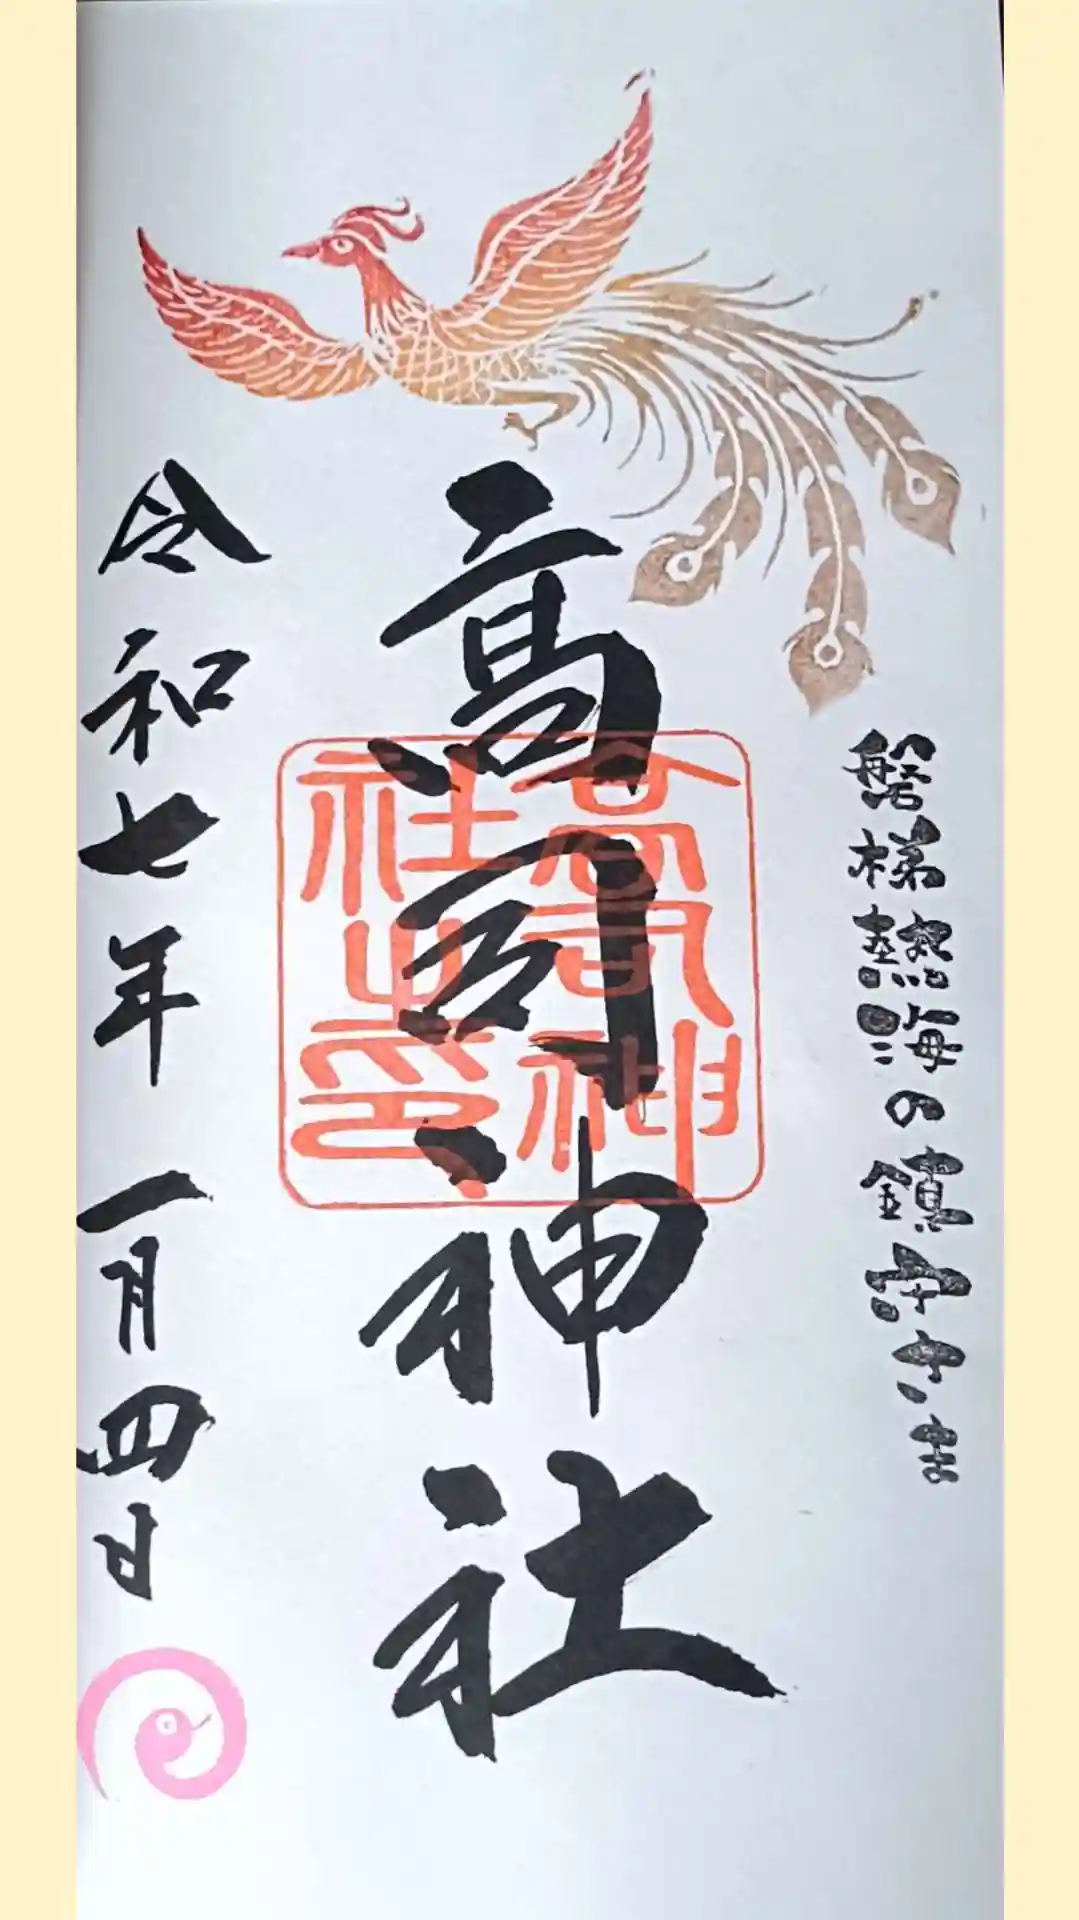 磐梯熱海の鎮守さま
高司神社
高司神
社之印
令和七年一月四日